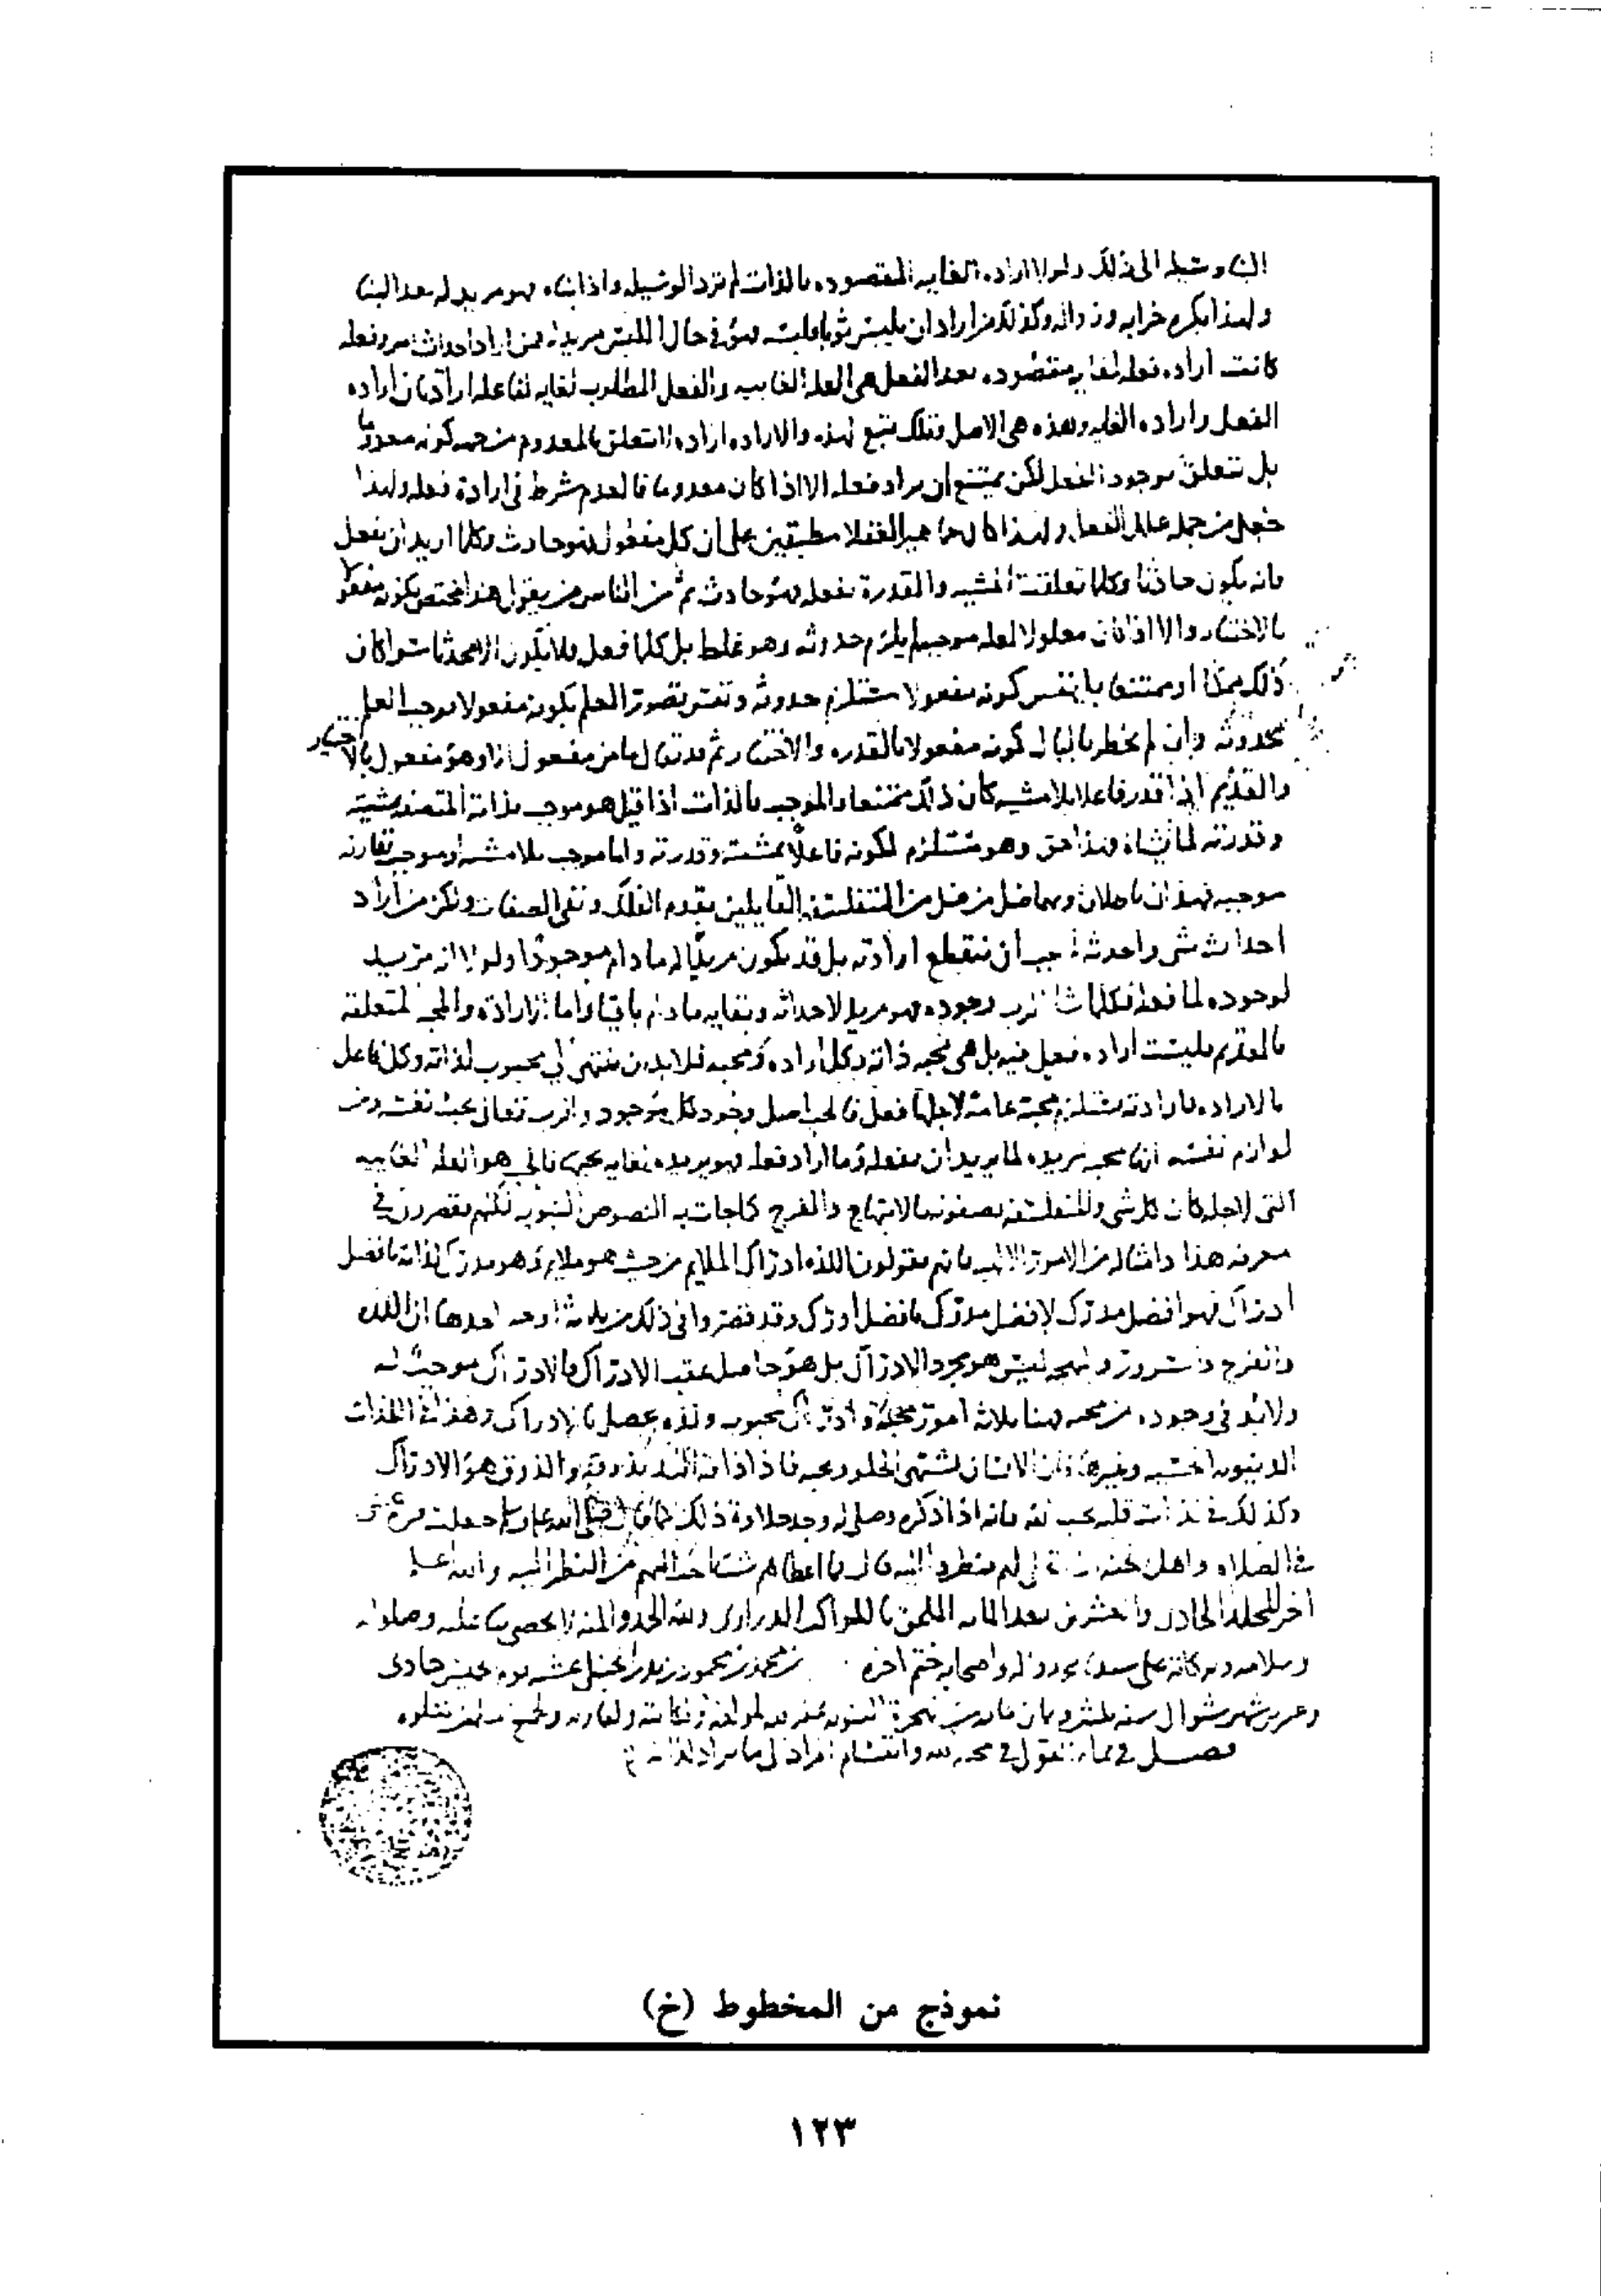 البناء وسيلة الى ذلك ولولا اراده الغايه المقصوده بالذات لم ترد الوسيله واذا بناه فهو مريد له بعد البنا
ولهذا يكره خرابه وزواله وكذلك من اراد ان يلبس ثوبا فلبسه فهو في حال اللبس مريد له فمن اراد احداث امر وفعله
كانت اراده فعله لغايه مقصوده بعد الفعل هي العله الغاييه والفعل المطلوب لغايه لفاعله ارادتان اراده
الفعل واراده الغايه وهذه هي الاصل وتلك تبع لهذه والاراده لا تتعلق بالمعدوم من جهه كونه معدوما
بل تتعلق بوجود الفعل لكن يمتنع ان يراد فعله الا اذا كان معدوما فالعدم شرط في ارادة فعله ولهذا
جعل من جمله علل الفعل ولهذا كان جماهير العقلا مطبقين على ان كل مفعول فهو حادث وكلما اريد ان يفعل
فانه يكون حادثا وكلما تعلقت المشيه والقدرة بفعله فهو حادث ثم من الناس من يقول هذا مختص بكونه مفعولا
بالاختيار والا اذا كان معلولا لعله موجبه لم يلزم حدوثه وهو غلط بل كلما فعل فلا يكون الا محدثا سوا كان
ذلك ممكنا او ممتنعا بل نفس كونه مفعولا مستلزم حدوثه ونفس تصور العلم بكونه مفعولا يوجب العلم
بحدوثه وان لم يخطر بالبال كونه مفعولا بالقدره والاختيار ثم ما من مفعول الا وهو مفعول بالاختيار
والقديم اذا قدر فاعلا بلا مشيه كان ذلك ممتنعا والموجب بالذات اذا قيل هو موجب بذاته المتصفه بمشيته
وقدرته لما يشاه فهذا حق وهو مستلزم لكونه فاعلا بمشيته وقدرته واما موجب بلا مشيه او موجب يقارنه
موجبه فهذان باطلان وبهما ضل من ضل من المتفلسفه القايلين بقدم الفلك ونفي الصفات ولكن من اراد
احداث شي واحدثه لم يجب ان تنقطع ارادته بل قد يكون مريدا له ما دام موجودا ولولا انه مريد
لوجوده لما فعله فكلما وجوده فهو مريد لاحداثه وبقايه ما دام باقيا واما الاراده والمحبه المتعلقه
بالقديم فليست اراده فعل فيه بل هي محبه ذاته وكل اراده ومحبه فلا بد ان تنتهي الى محبوب لذاته وكل فاعل
بالاراده فارادته تستلزم محبة عامة لاجلها فعل فالحب اصل وجود كل موجود والرب تعالى يحب نفسه ومن
لوازم نفسه انه محب مريد لما يريد ان يفعله وما اراد فعله فهو يريده لغايه يحبها فالحب هو العله الغاييه
التي لاجله كان كل شي والمتفلسفه يصفونه بالابتهاج والفرح كما جات به النصوص النبويه لكنهم يقصرون في
معرفه هذا وامثاله من الامور الالهيه فانهم يقولون اللذه ادراك الملايم من حيث هو ملايم وهو مدرك لذاته بافضل
ادراك فهو افضل مدرك لافضل مدرك بافضل ادراك وقد قصروا في ذلك من ثلاثه اوجه احدها ان اللذه
والفرح والسرور والبهجه ليس هو مجرد الادراك بل هو حاصل عقب الادراك فالادراك موجب له
ولا بد في وجوده من محبه فهنا ثلاثه امور محبة وادراك محبوب ولذه يحصل بالادراك وهذا في اللذات
الدنيويه الحسيه وغيرها فان الانسان يشتهي الحلو ويحبه فاذا ذاقه التذ بذوقه والذوق هو الادراك
وكذلك في لذات قلبه يحب الله فانه اذا ذكره وصلى له وجد حلاوة ذلك كما قال صلى الله عليه وسلم جعلت قره عيني
في الصلاه واهل الجنه اذا نظروا اليه قال فما اعطاهم شيئا احب اليهم من النظر اليه والله اعلم
آخر المجلد الحادي والعشرين بعد المايه الملحق بالكواكب الدراري ولله الحمد والمنه وصلواته
وسلامه وبركاته على سيدنا محمد واله واصحابه ختم اخره
وعشرين شهر شوال سنه
فصل في محبه الله
نموذج من المخطوط (خ)
١٢٣